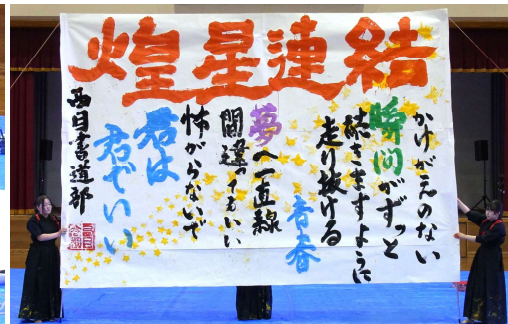 煌星連結
かけがえのない
瞬間がずっと
続きますように
走り抜ける
青春
夢へ一直線
間違ってもいい
怖がらないで
君は
君でいい
西目書道部